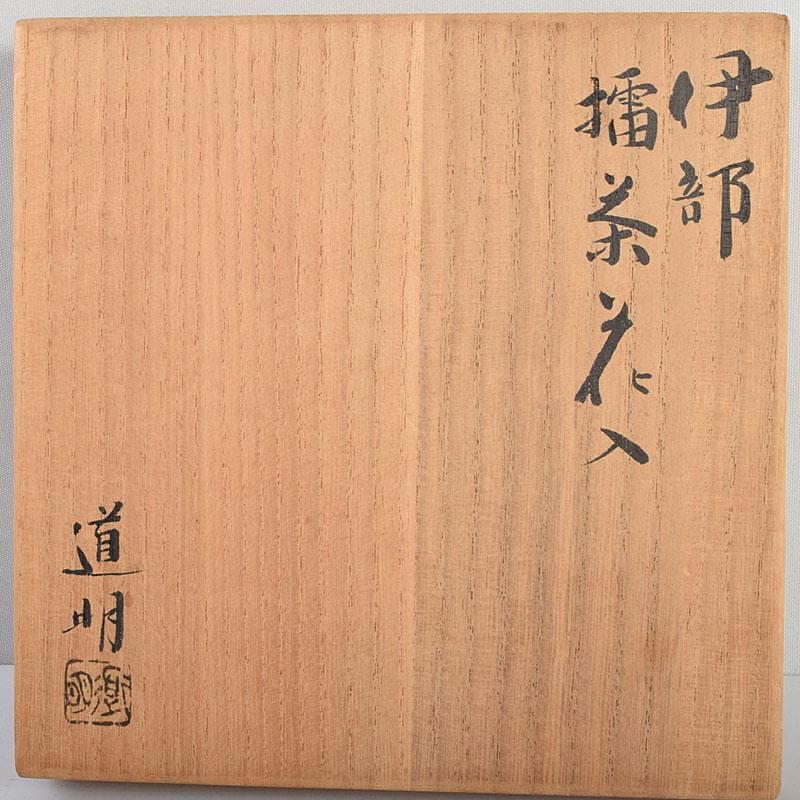 伊部
擂茶花入
道明